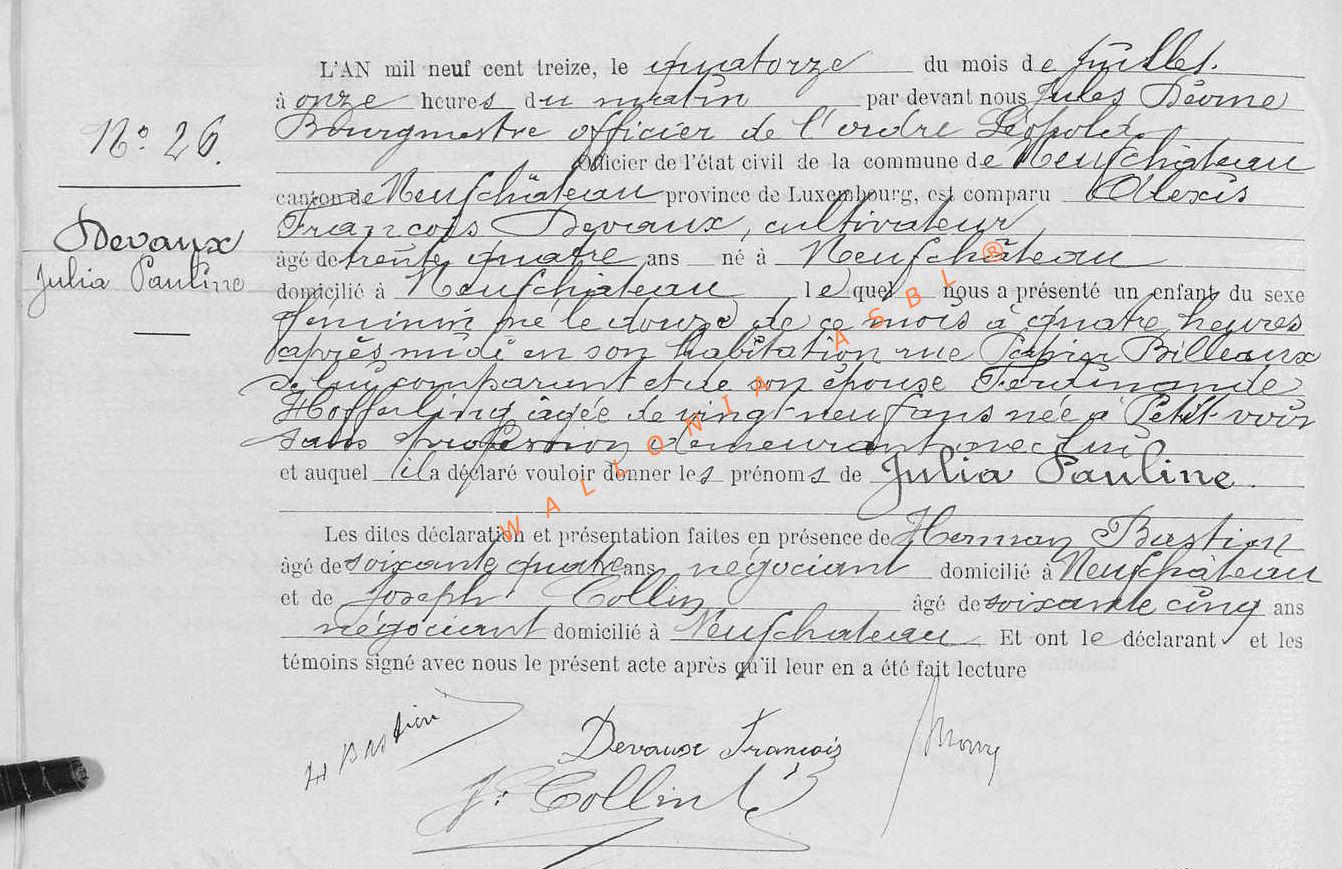 N° 26.
Devaux
Julia Pauline
L'AN mil neuf cent treize, le quatorze du mois de Juillet.
à onze heures du matin par devant nous Jules
Bourgmestre officier de l'ordre Léopold,
Officier de l'état civil de la commune de Neufchâteau
canton de Neufchâteau province de Luxembourg, est comparu Alexis
François Devaux, cultivateur,
âgé de trente quatre ans né à Neufchâteau
domicilié à Neufchateau lequel nous a présenté un enfant du sexe
féminin né le douze de ce mois à quatre heures
après midi en son habitation rue Billeaux
de lui comparant et de son épouse Ferdinande
Hofferling âgée de vingt-neuf ans née à Petit-voir
sans profession demeurant avec lui
et auquel il a déclaré vouloir donner les prénoms de Julia Pauline.
Les dites déclaration et présentation faites en présence de Herman Bastien
âgé de soixante quatre ans négociant domicilié à Neufchâteau
et de Joseph Collin âgé de soixante cinq ans
négociant domicilié à Neufchateau. Et ont le déclarant et les
témoins signé avec nous le présent acte après qu'il leur en a été fait lecture
H Bastien
Devaux François
J. Collin
WALLONIA ASBL ®